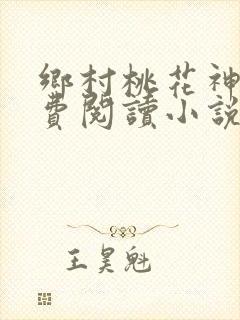 鄉村桃花神
費閱讀小說
王昊魁